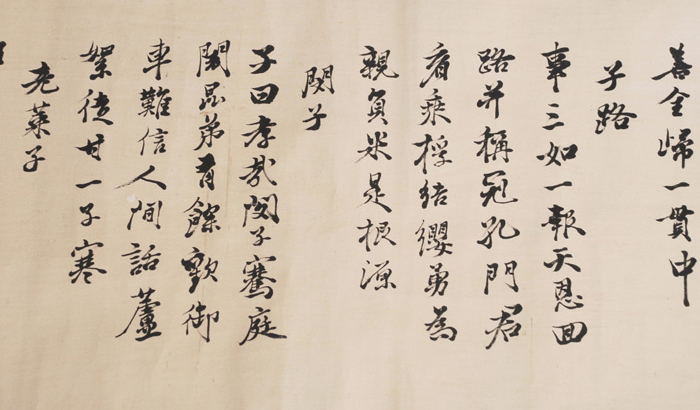 善全歸一貫中
子路
事三如一報天恩回
路并稱冠孔門君
看乘桴結纓勇為
親負米是根源
閔子
子曰孝哉閔子騫庭
闈昆弟有餘歡御
車難信人間話蘆
絮徒甘一子寒
老萊子